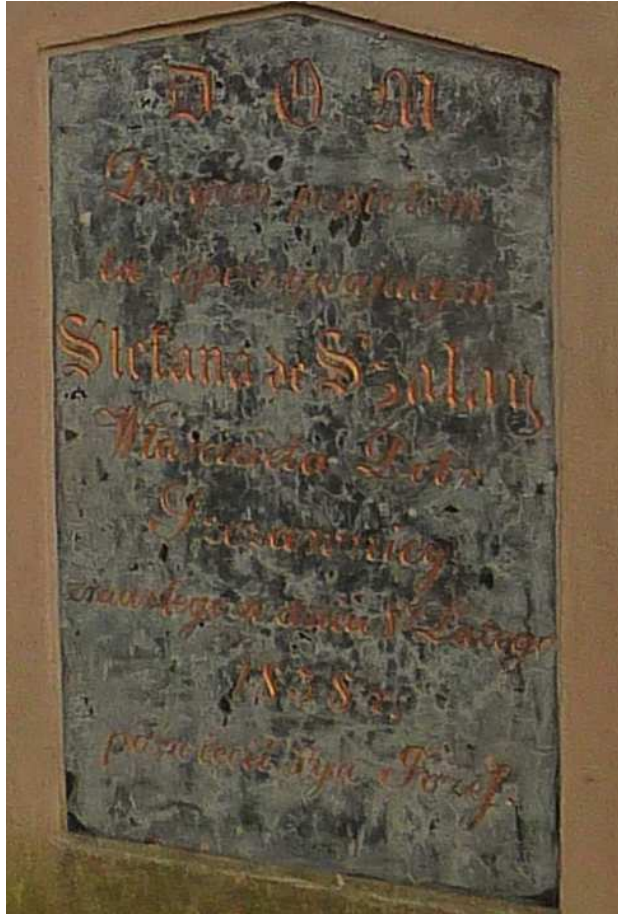 D. O M
popiołom
tu spoczywającym
Stefana de Szalay
Właściciela Dóbr
Szczawnicy
zmarłego w dniu 8 Lutego
1838 r.
poświęcił Syn Józef.